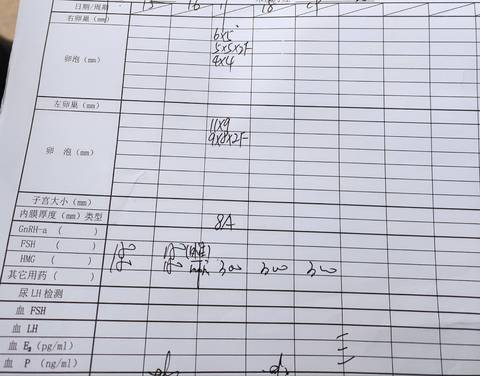 日期/周期 15 16 18
右卵巢(mm)
6x5
5x5x2F
4x4
卵泡(mm)
左卵巢(mm)
11x9
9x8x2F
卵 泡(mm)
子宫大小(mm)
内膜厚度(mm)类型 8A
GnRH-a ( )
FSH ( )
HMG ( ) 300 300 300
其它用药( )
尿 LH 检测
血 FSH
血 LH
血 E₂ (pg/ml)
血 P (ng/ml)